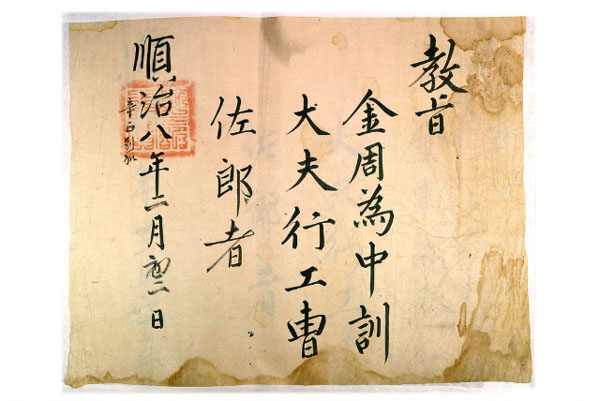 教旨
金周為中訓
大夫行工曺
佐郎者
順治八年二月初二日